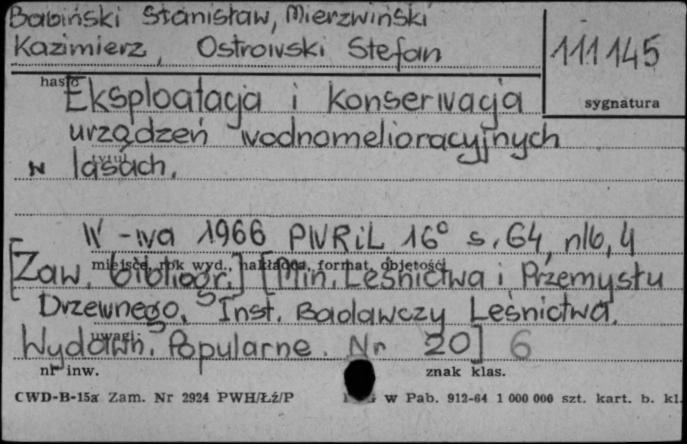 Babiński Stanisław, Mierzwiński
Kazimierz, Ostrowski Stefan
111145
hasło
sygnatura
Eksploatacja i konserwacja
urządzeń wodnomelioracyjnych
w lasach.
tytuł
W-wa 1966 PWRiL 16° s. 64, nlb, 4
miejsce, rok wyd., nakładca, format, objętość
[Zaw. bibliogr.] [Min. Leśnictwa i Przemysłu
Drzewnego. Inst. Badawczy Leśnictwa.
uwagi
Wydawn. Popularne. Nr 20] 6
nr inw.
znak klas.
CWD-B-15a Zam. Nr 2924 PWH/Łź/P
w Pab. 912-64 1 000 000 szt. kart. b. kl.